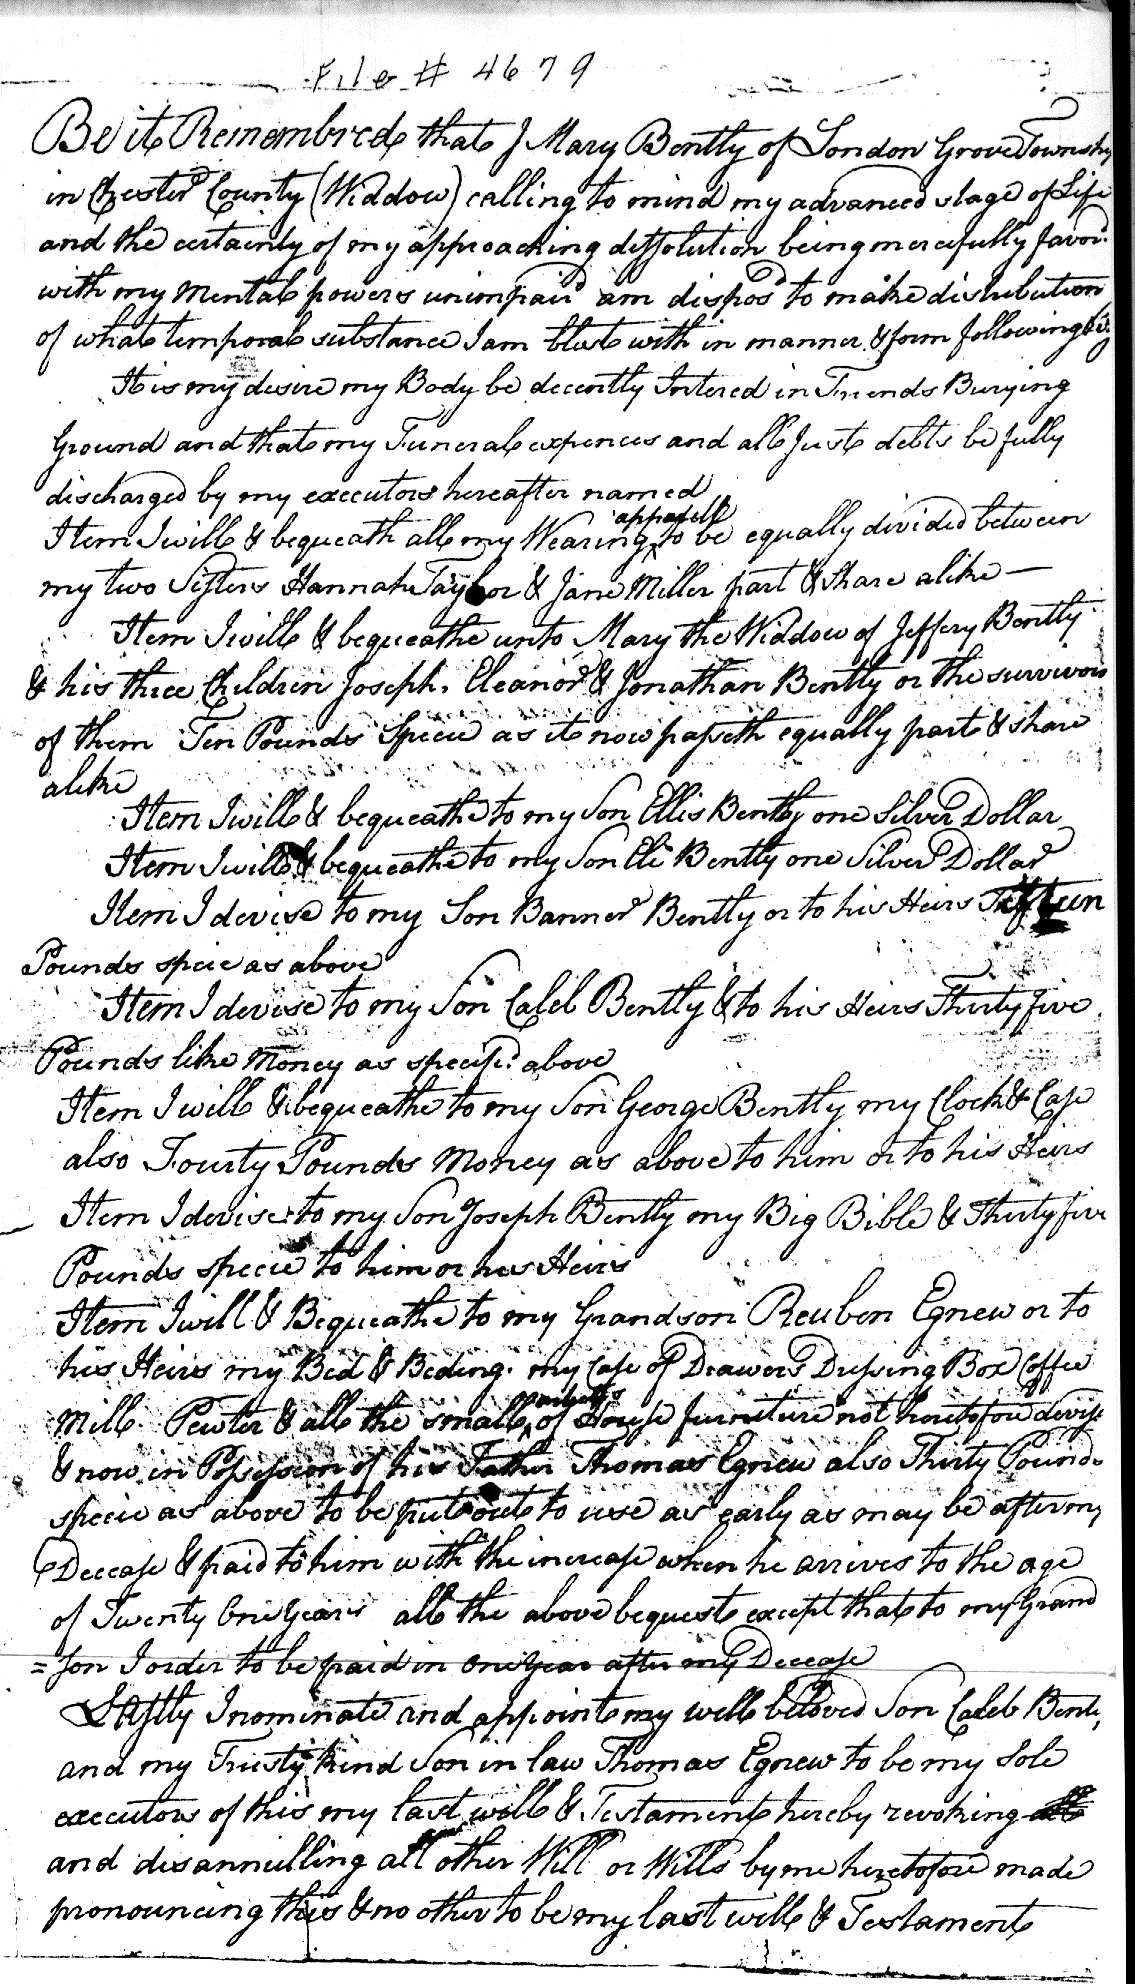 File # 4679
Be it Remembred that I Mary Bently of London Grove Township
in Chester County (Widdow) calling to mind my advanced stage of Life
and the certainty of my approaching dissolution being mercifully favord.
with my Mental powers unimpaird am disposd to make distribution
of what temporal substance I am blest with in manner & form following
It is my desire my Body be decently Intered in Friends Burying
Ground and that my Funeral expences and all Just debts be fully
discharged by my executors hereafter named
Item I will & bequeath all my Wearing apparell to be equally divided between
my two Sisters Hannah Taylor & Jane Miller part & Share alike —
Item I will & bequeathe unto Mary the Widdow of Jeffery Bently
& his three Children Joseph, Eleanor & Jonathan Bently or the survivors
of them Ten Pounds Specie as it now passeth equally part & share
alike
Item I will & bequeathe to my Son Ellis Bently one Silver Dollar
Item I will & bequeathe to my Son Eli Bently one Silver Dollar
Item I devise to my Son Banner Bently or to his Heirs Fifteen
Pounds specie as above
Item I devise to my Son Caleb Bently & to his Heirs Thirty five
Pounds like Money as specifd. above
Item I will & bequeathe to my Son George Bently my Clock & Case
also Fourty Pounds Money as above to him or to his Heirs
Item I devise to my Son Joseph Bently my Big Bible & Thirty five
Pounds specie to him or his Heirs
Item I will & Bequeathe to my Grandson Reuben Egnew or to
his Heirs my Bed & Beding. my Case of Drawers Dressing Box Coffee
Mill Pewter & all the small of House furniture not heretofore devisd
& now in Possession of his Father Thomas Egnew also Thirty Pounds
specie as above to be put out to use as early as may be after my
Decease & paid to him with the increase when he arrives to the age
of Twenty One Years all the above bequests except that to my Grand
=son I order to be paid in one year after my Decease
Lastly I nominate and appoint my well beloved Son Caleb Bently
and my Trusty kind Son in law Thomas Egnew to be my Sole
executors of this my last will & Testament hereby revoking all
and disannulling all other Will or Wills by me heretofore made
pronouncing this & no other to be my last will & Testament